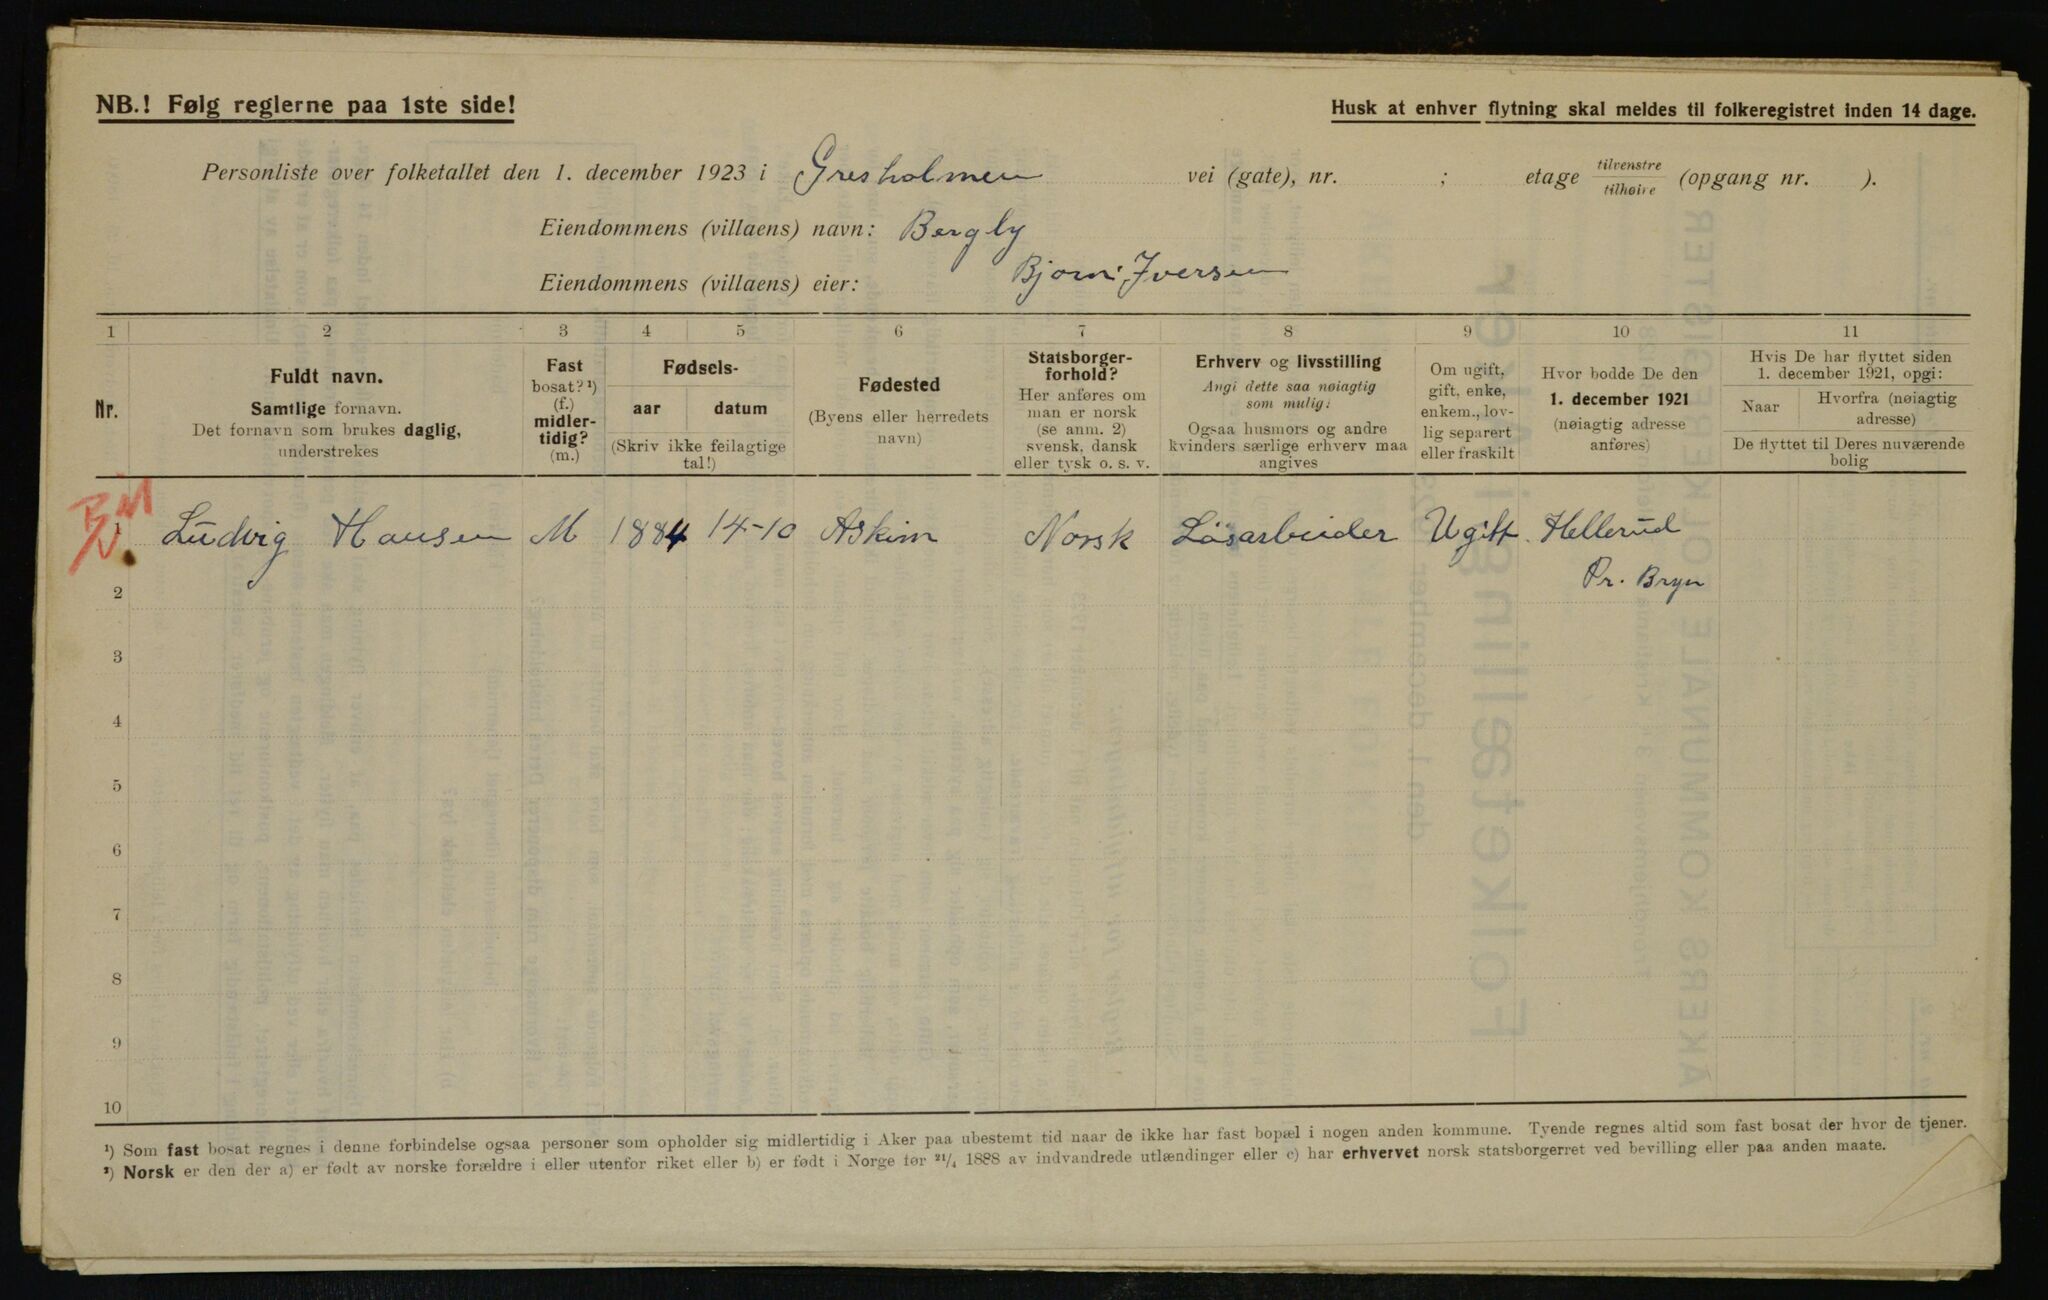 NB.! Følg reglerne paa 1ste side!
Husk at enhver flytning skal meldes til folkeregistret inden 14 dage.
Personliste over folketallet den 1. december 1923 i Gresholmen vei (gate), nr. ; etage tilvenstre/tilhøire (opgang nr. ).
Eiendommens (villaens) navn: Bergly
Eiendommens (villaens) eier: Bjorn Iversen
1 2 3 4 5 6 7 8 9 10 11
Nr.
Fuldt navn.
Samtlige fornavn.
Det fornavn som brukes daglig,
understrekes
Fast
bosat? ¹)
(f.)
midler-
tidig?
(m.)
Fødsels-
aar
datum
(Skriv ikke feilagtige
tal!)
Fødested
(Byens eller herredets
navn)
Statsborger-
forhold?
Her anføres om
man er norsk
(se anm. 2)
svensk, dansk
eller tysk o. s. v.
Erhverv og livsstilling
Angi dette saa nøiagtig
som mulig:
Ogsaa husmors og andre
kvinders særlige erhverv maa
angives
Om ugift,
gift, enke,
enkem., lov-
lig separert
eller fraskilt
Hvor bodde De den
1. december 1921
(nøiagtig adresse
anføres)
Hvis De har flyttet siden
1. december 1921, opgi:
Naar
Hvorfra (nøiagtig
adresse)
De flyttet til Deres nuværende
bolig
1 Ludvig Hansen M 1884 14-10 Askim Norsk Løsarbeider Ugift. Hellerud
Pr. Bryn
2
3
4
5
6
7
8
9
10
¹) Som fast bosat regnes i denne forbindelse ogsaa personer som opholder sig midlertidig i Aker paa ubestemt tid naar de ikke har fast bopæl i nogen anden kommune. Tyende regnes altid som fast bosat der hvor de tjener.
²) Norsk er den der a) er født av norske forældre i eller utenfor riket eller b) er født i Norge før 21/4 1888 av indvandrede utlændinger eller c) har erhvervet norsk statsborgerret ved bevilling eller paa anden maate.